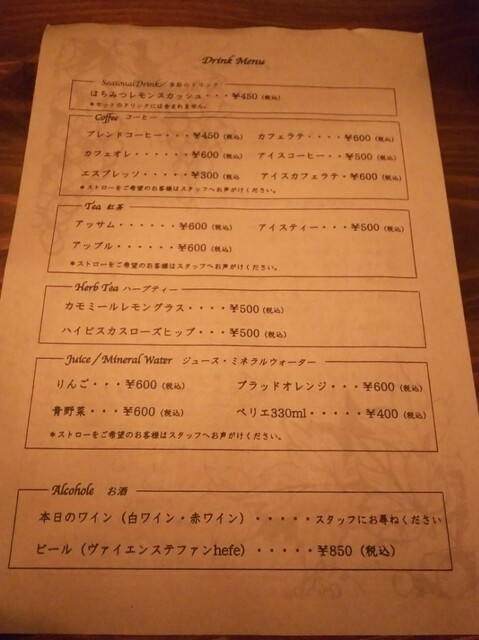 Drink Menu
Seasonal Drink/ 季節のドリンク
はちみつレモンスカッシュ・・・¥450（税込）
＊セットのドリンクには含まれません。
Coffee コーヒー
ブレンドコーヒー・・・¥450（税込） カフェラテ・・・・¥600（税込）
カフェオレ・・・・・・¥600（税込） アイスコーヒー・・¥500（税込）
エスプレッソ・・・・・¥300（税込） アイスカフェラテ・¥600（税込）
＊ストローをご希望のお客様はスタッフへお声がけください。
Tea 紅茶
アッサム・・・・・・¥600（税込） アイスティー・・・¥500（税込）
アップル・・・・・・¥600（税込）
＊ストローをご希望のお客様はスタッフへお声がけください。
Herb Tea ハーブティー
カモミールレモングラス・・・・¥500（税込）
ハイビスカスローズヒップ・・・¥500（税込）
Juice / Mineral Water ジュース・ミネラルウォーター
りんご・・・¥600（税込） ブラッドオレンジ・・・¥600（税込）
青野菜・・・¥600（税込） ペリエ330ml・・・・・¥400（税込）
＊ストローをご希望のお客様はスタッフへお声がけください。
Alcohole お酒
本日のワイン（白ワイン・赤ワイン）・・・・・スタッフにお尋ねください
ビール（ヴァイエンステファンhefe）・・・・・¥850（税込）